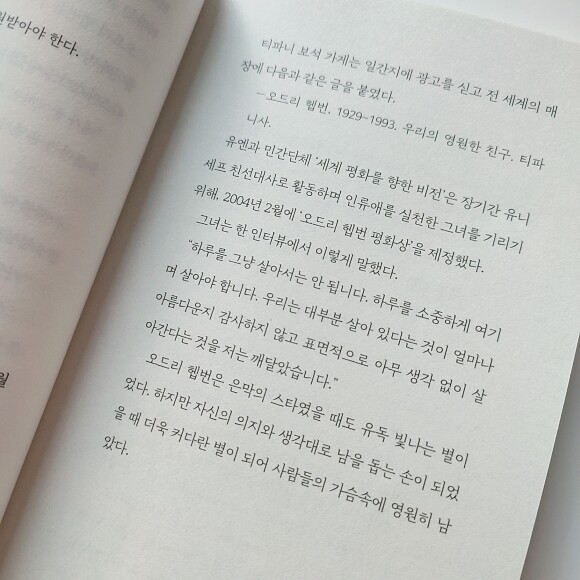 원받아야 한다.
월
티파니 보석 가게는 일간지에 광고를 싣고 전 세계의 매
장에 다음과 같은 글을 붙였다.
—오드리 헵번, 1929~1993. 우리의 영원한 친구. 티파
니사.
유엔과 민간단체 ‘세계 평화를 향한 비전’은 장기간 유니
세프 친선대사로 활동하며 인류애를 실천한 그녀를 기리기
위해, 2004년 2월에 ‘오드리 헵번 평화상’을 제정했다.
그녀는 한 인터뷰에서 이렇게 말했다.
“하루를 그냥 살아서는 안 됩니다. 하루를 소중하게 여기
며 살아야 합니다. 우리는 대부분 살아 있다는 것이 얼마나
아름다운지 감사하지 않고 표면적으로 아무 생각 없이 살
아간다는 것을 저는 깨달았습니다.”
오드리 헵번은 은막의 스타였을 때도 유독 빛나는 별이
었다. 하지만 자신의 의지와 생각대로 남을 돕는 손이 되었
을 때 더욱 커다란 별이 되어 사람들의 가슴속에 영원히 남
았다.